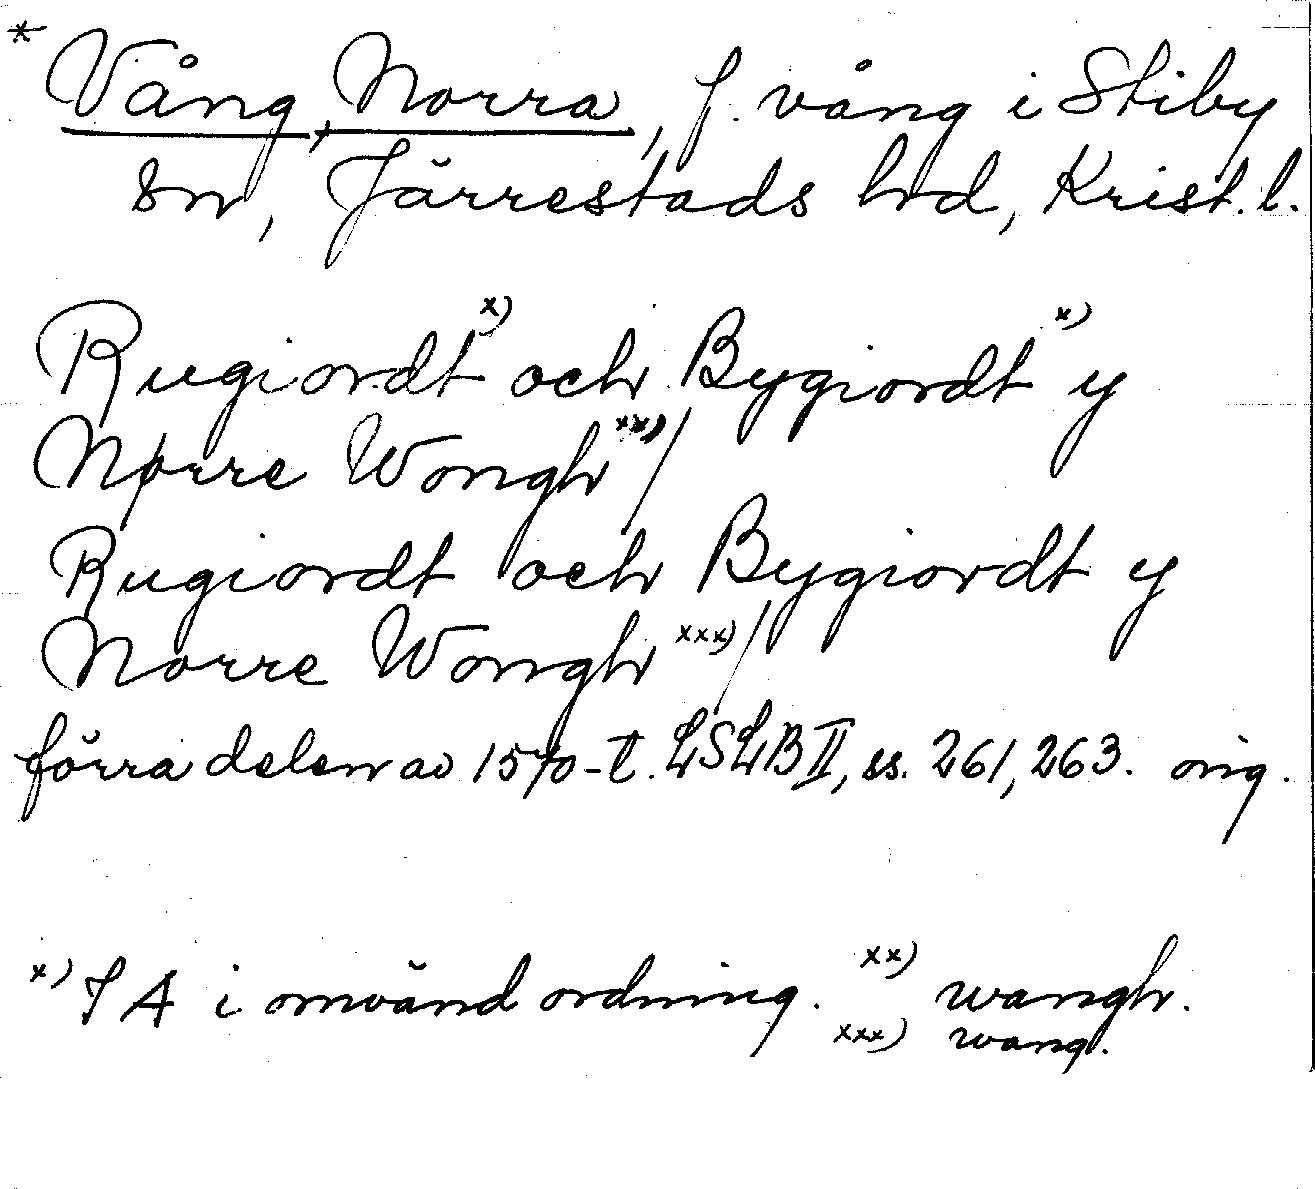 * Vång, Norra, f. vång i Stiby
sn, Järrestads hd, Krist. l.
Rugiordt x) och Bygiordt x) y
Nørre Wongh xx) /
Rugiordt och Bygiordt y
Norre Wongh xxx) /
förra delen av 1570-t. LSLB II, ss. 261, 263. orig.
x) I A i omvänd ordning. xx) wangh.
xxx) wang.